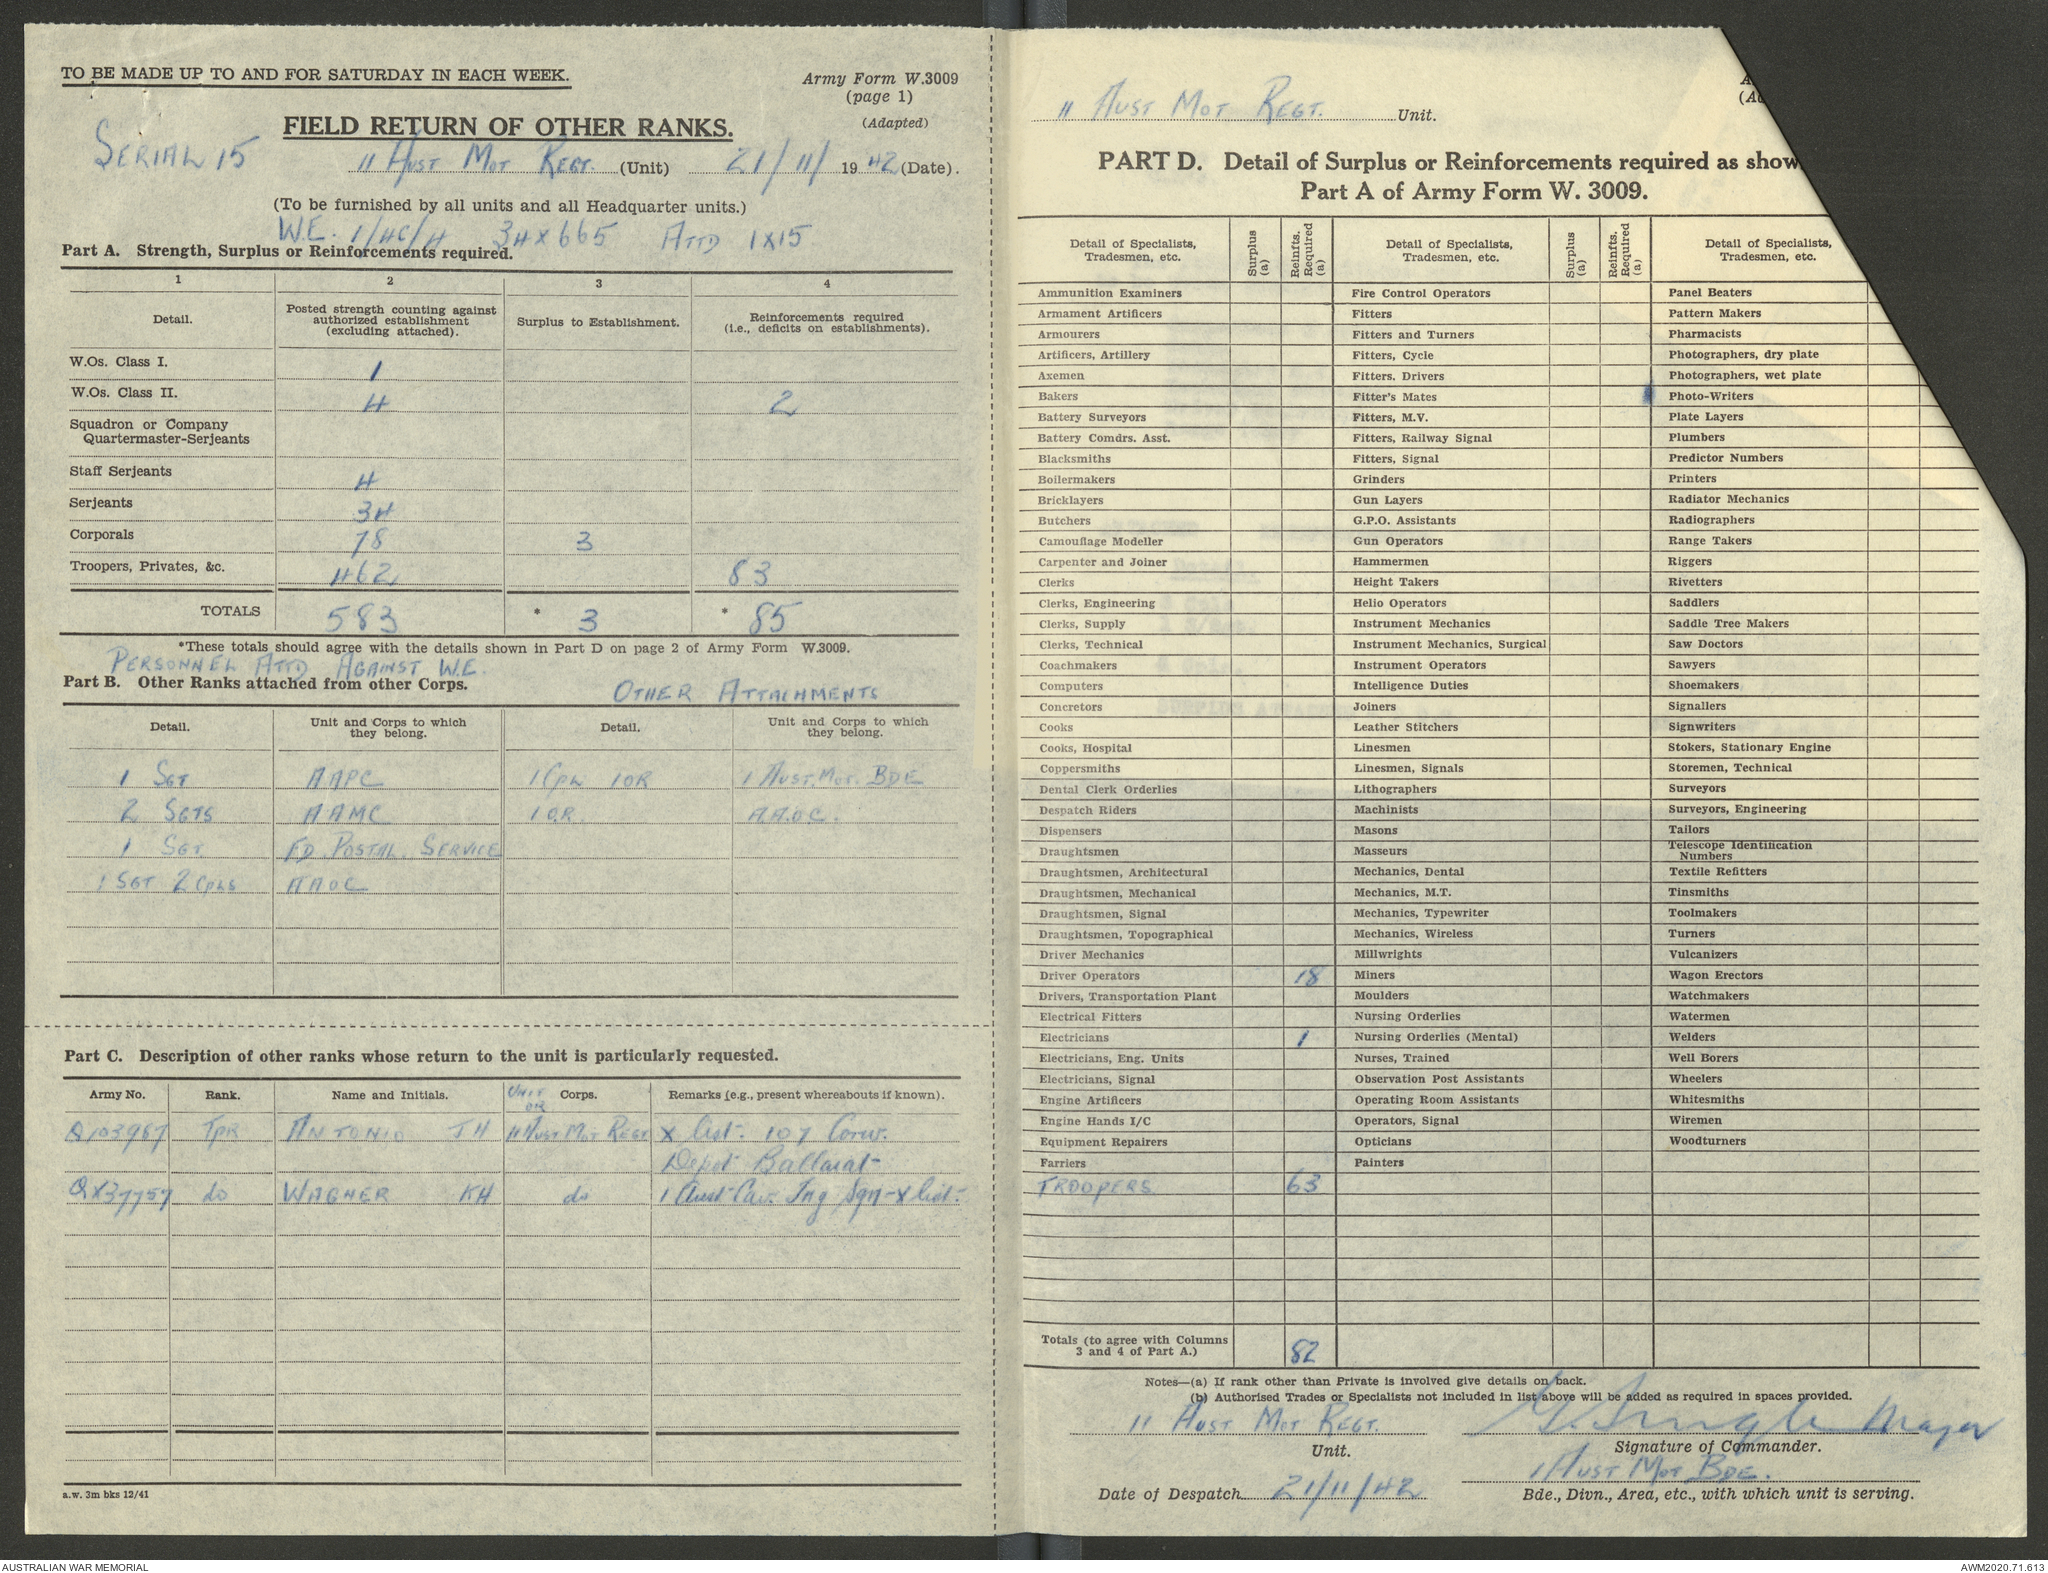 TO BE MADE UP TO AND FOR SATURDAY IN EACH WEEK.
Army Form W.3009
(page 1)
(Adapted)
FIELD RETURN OF OTHER RANKS.
SERIAL 15
11 AUST MOT REGT. (Unit) 21/11/1942 (Date).
(To be furnished by all units and all Headquarter units.)
W.E. 1/4C/4 34 x 665 ATTD 1x15
Part A. Strength, Surplus or Reinforcements required.
1 2 3 4
Detail. Posted strength counting against authorized establishment (excluding attached). Surplus to Establishment. Reinforcements required (i.e., deficits on establishments).
W.Os. Class I. 1
W.Os. Class II. 4 2
Squadron or Company
Quartermaster-Serjeants
Staff Serjeants 4
Serjeants 34
Corporals 78 3
Troopers, Privates, &c. 462 83
TOTALS 583 * 3 * 85
*These totals should agree with the details shown in Part D on page 2 of Army Form W.3009.
PERSONNEL ATTD AGAINST W.E.
Part B. Other Ranks attached from other Corps.
OTHER ATTACHMENTS
Detail. Unit and Corps to which they belong. Detail. Unit and Corps to which they belong.
1 SGT AAPC 1 CPL 1 OR 1 AUST. MOT. BDE
2 SGTS AAMC 1 O.R. A.A.O.C.
1 SGT FD. POSTAL. SERVICE
1 SGT 2 CPLS AAOC
Part C. Description of other ranks whose return to the unit is particularly requested.
Army No. Rank. Name and Initials. UNIT OR Corps. Remarks (e.g., present whereabouts if known).
Q103967 TPR ANTONIO JH 11 AUST MOT REGT X list. 107 Conv.
Depot Ballarat
QX37757 do WAGNER KH do 1 Aust Cav. Tng Sqn - X list.
a.w. 3m bks 12/41
11 AUST MOT REGT. Unit.
PART D. Detail of Surplus or Reinforcements required as show
Part A of Army Form W. 3009.
Detail of Specialists, Tradesmen, etc. Surplus (a) Reinfts. Required (a) Detail of Specialists, Tradesmen, etc. Surplus (a) Reinfts. Required (a) Detail of Specialists, Tradesmen, etc.
Ammunition Examiners Fire Control Operators Panel Beaters
Armament Artificers Fitters Pattern Makers
Armourers Fitters and Turners Pharmacists
Artificers, Artillery Fitters, Cycle Photographers, dry plate
Axemen Fitters. Drivers Photographers, wet plate
Bakers Fitter's Mates Photo-Writers
Battery Surveyors Fitters, M.V. Plate Layers
Battery Comdrs. Asst. Fitters, Railway Signal Plumbers
Blacksmiths Fitters, Signal Predictor Numbers
Boilermakers Grinders Printers
Bricklayers Gun Layers Radiator Mechanics
Butchers G.P.O. Assistants Radiographers
Camouflage Modeller Gun Operators Range Takers
Carpenter and Joiner Hammermen Riggers
Clerks Height Takers Rivetters
Clerks, Engineering Helio Operators Saddlers
Clerks, Supply Instrument Mechanics Saddle Tree Makers
Clerks, Technical Instrument Mechanics, Surgical Saw Doctors
Coachmakers Instrument Operators Sawyers
Computers Intelligence Duties Shoemakers
Concretors Joiners Signallers
Cooks Leather Stitchers Signwriters
Cooks, Hospital Linesmen Stokers, Stationary Engine
Coppersmiths Linesmen, Signals Storemen, Technical
Dental Clerk Orderlies Lithographers Surveyors
Despatch Riders Machinists Surveyors, Engineering
Dispensers Masons Tailors
Draughtsmen Masseurs Telescope Identification Numbers
Draughtsmen, Architectural Mechanics, Dental Textile Refitters
Draughtsmen, Mechanical Mechanics, M.T. Tinsmiths
Draughtsmen, Signal Mechanics, Typewriter Toolmakers
Draughtsmen, Topographical Mechanics, Wireless Turners
Driver Mechanics Millwrights Vulcanizers
Driver Operators 18 Miners Wagon Erectors
Drivers, Transportation Plant Moulders Watchmakers
Electrical Fitters Nursing Orderlies Watermen
Electricians 1 Nursing Orderlies (Mental) Welders
Electricians, Eng. Units Nurses, Trained Well Borers
Electricians, Signal Observation Post Assistants Wheelers
Engine Artificers Operating Room Assistants Whitesmiths
Engine Hands I/C Operators, Signal Wiremen
Equipment Repairers Opticians Woodturners
Farriers Painters
TROOPERS 63
Totals (to agree with Columns 3 and 4 of Part A.) 82
Notes—(a) If rank other than Private is involved give details on back.
(b) Authorised Trades or Specialists not included in list above will be added as required in spaces provided.
11 AUST MOT REGT. Major
Unit. Signature of Commander.
1 AUST MOT BDE.
Date of Despatch 21/11/42 Bde., Divn., Area, etc., with which unit is serving.
AUSTRALIAN WAR MEMORIAL AWM2020.71.613